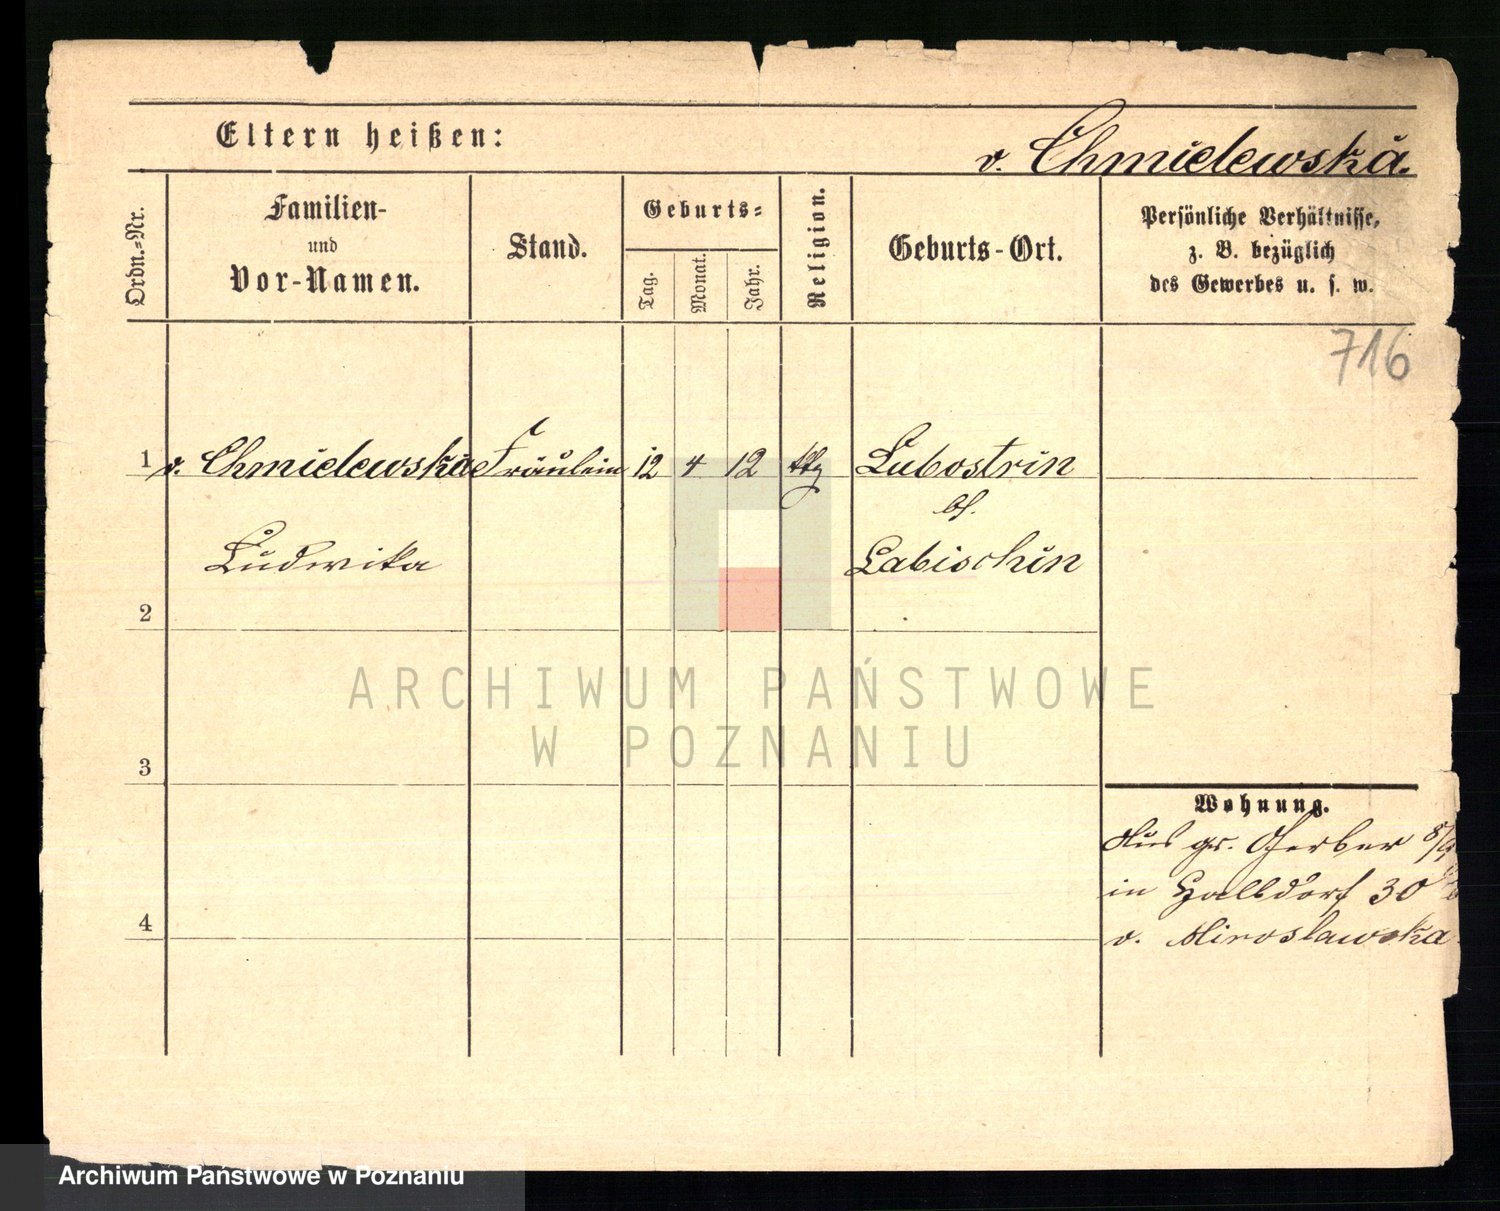 Eltern heißen:
v. Chmielewska.
Ordn.-Nr.
Familien-
und
Vor-Namen.
Stand.
Geburts-
Tag.
Monat.
Jahr.
Religion.
Geburts-Ort.
Persönliche Verhältnisse,
z. B. bezüglich
des Gewerbes u. s. w.
716
1 v. Chmielewska Fräulein 12 4 12 Lubostrin
bf.
Ludwika Labischin
2
3
4
Wohnung.
Aus gr. Gerber 8/9
in Halldorf 30
v. Miroslawska
ARCHIWUM PAŃSTWOWE
W POZNANIU
Archiwum Państwowe w Poznaniu